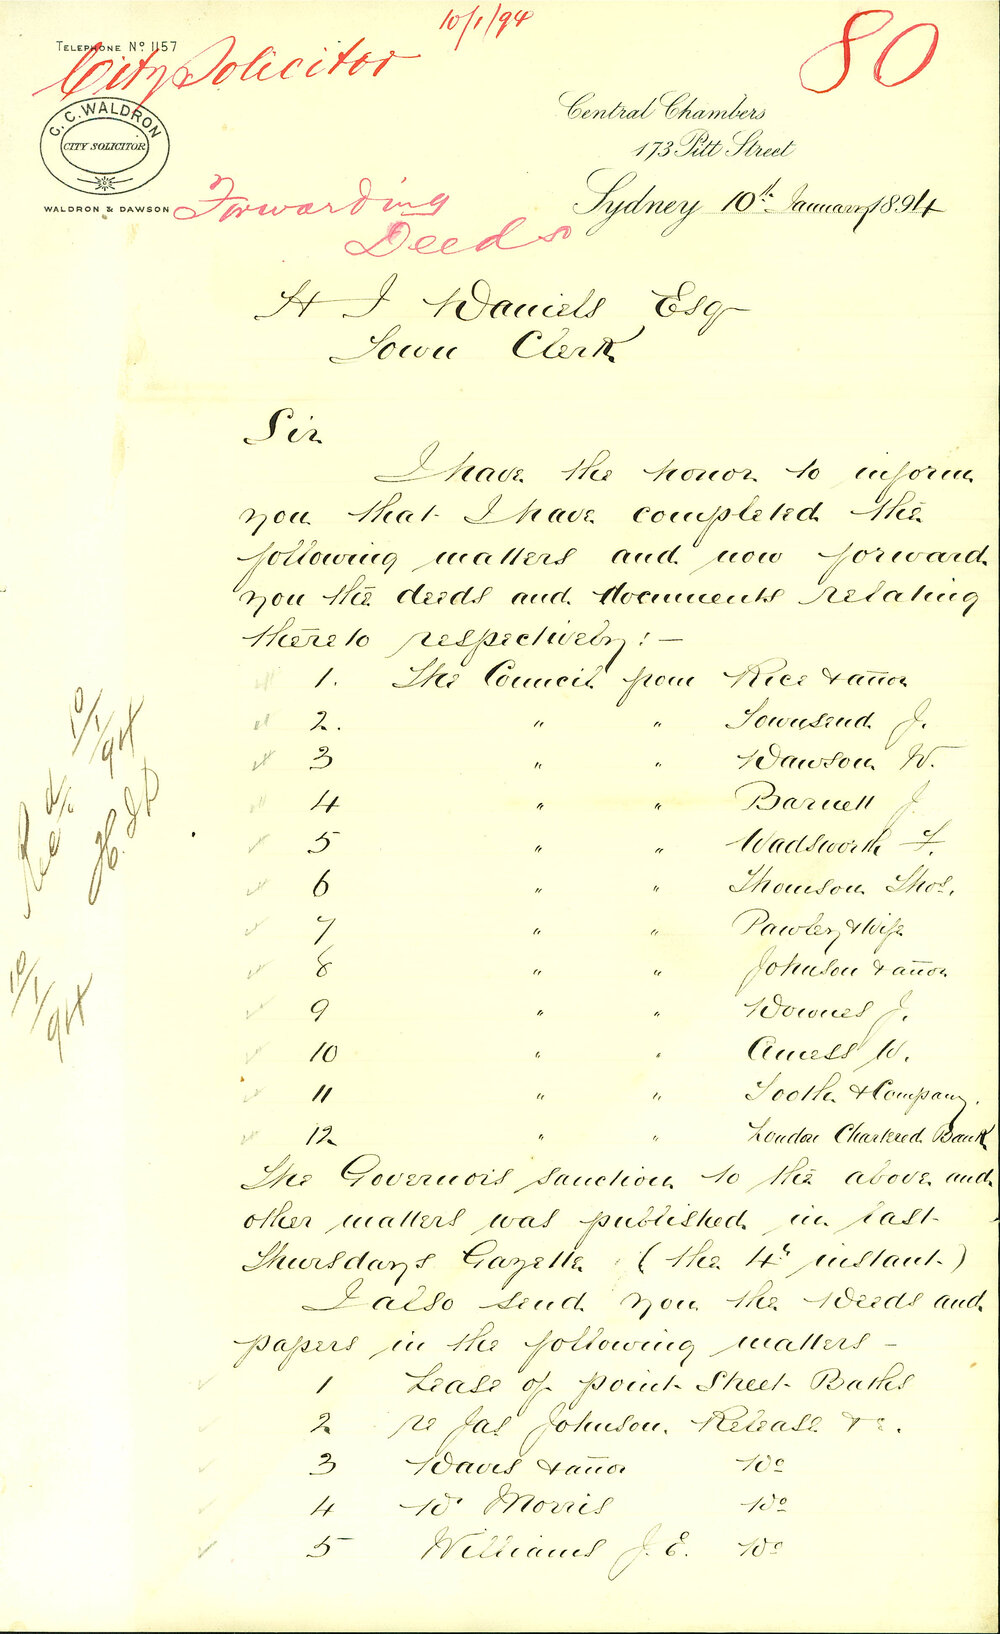 10/1/94
80
TELEPHONE No 1157
City Solicitor
G. C. WALDRON
CITY SOLICITOR
WALDRON & DAWSON
Central Chambers
173 Pitt Street
Sydney 10th January 1894
Forwarding
Deeds
H J Daniels Esq
Town Clerk
Sir
I have the honor to inform
you that I have completed the
following matters and now forward
you the deeds and documents relating
thereto respectively:—
1. The Council from Rice & anor
2. " " Townsend J.
3 " " Dawson W.
4 " " Barnett J.
5 " " Wadsworth F.
6 " " Thomson Thos.
7 " " Pawley & Wife
8 " " Johnson & anor
9 " " Downes J.
10 " " Amess W.
11 " " Tooth & Company.
12 " " London Chartered Bank
The Governors sanction to the above and
other matters was published in last
Thursdays Gazette (the 4th instant)
I also send you the Deeds and
papers in the following matters —
1 Lease of point Street Baths
2 re Jas Johnson. Release &c.
3 Davis & anor Do
4 Morris Do
5 Williams J. E. Do
Rec
10/1/94
10/1/94